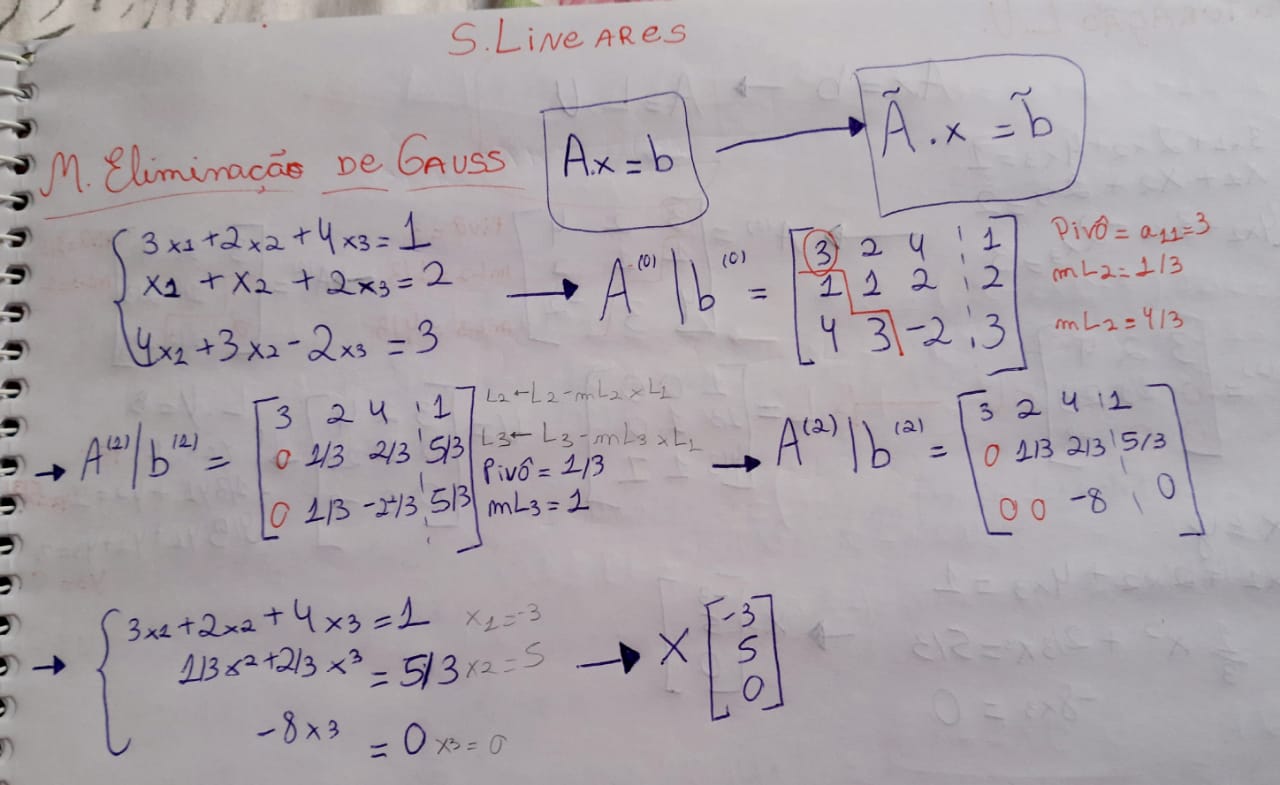 S. LINEARES
M. Eliminação DE GAUSS
A.x = b → Ã.x = b̃
3x1 + 2x2 + 4x3 = 1
x1 + x2 + 2x3 = 2
4x1 + 3x2 - 2x3 = 3
→ A⁽⁰⁾ | b⁽⁰⁾ =
3 2 4 ¦ 1
1 1 2 ¦ 2
4 3 -2 ¦ 3
Pivô = a11 = 3
mL2 = 1/3
mL2 = 4/3
→ A⁽²⁾ | b⁽²⁾ =
3 2 4 ¦ 1
0 1/3 2/3 ¦ 5/3
0 1/3 -2²/3 ¦ 5/3
L2 ← L2 - mL2 x L1
L3 ← L3 - mL3 x L1
Pivô = 1/3
mL3 = 1
→ A⁽²⁾ | b⁽²⁾ =
3 2 4 ¦ 1
0 1/3 2/3 ¦ 5/3
0 0 -8 ¦ 0
→ 3x1 + 2x2 + 4x3 = 1 x1 = -3
1/3x² + 2/3x³ = 5/3 x2 = 5
-8x3 = 0 x3 = 0
→ X
-3
5
0